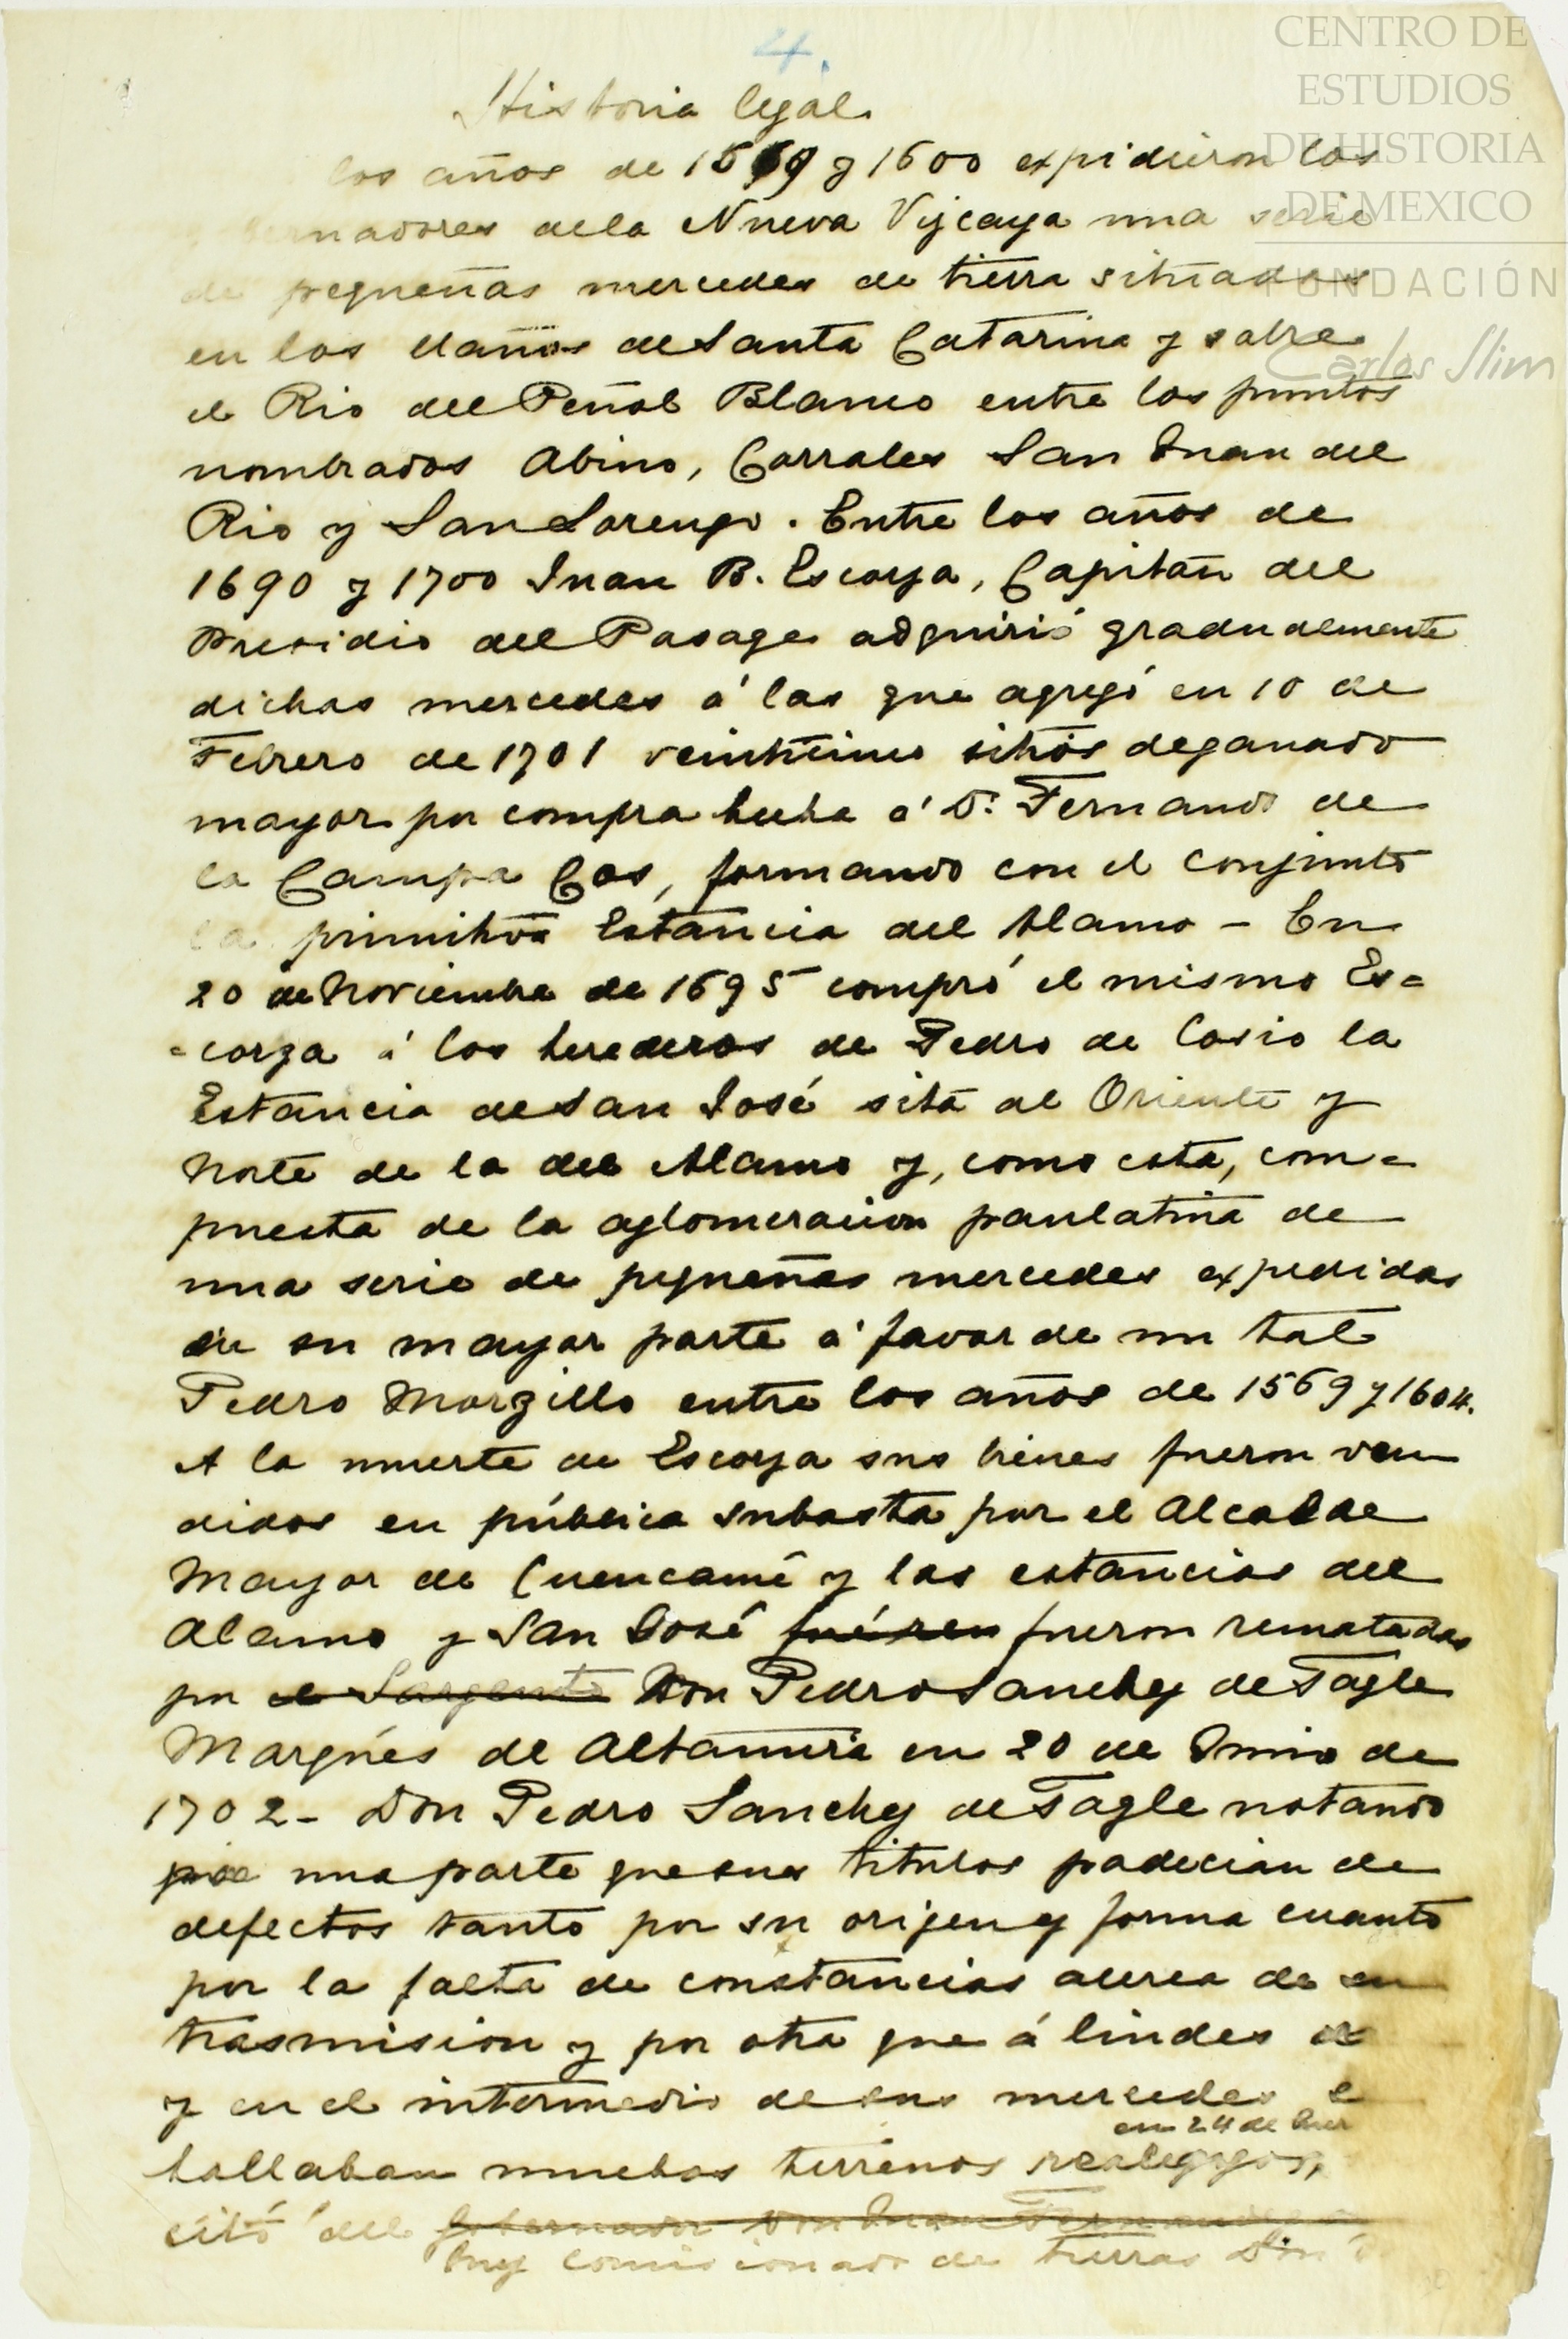 4.
CENTRO DE
ESTUDIOS
DE HISTORIA
DE MEXICO
FUNDACIÓN
Carlos Slim
Historia legal.
los años de 1569 y 1600 expidieron los
de la Nueva Vizcaya una serie
de pequeñas mercedes de tierra situadas
en los llanos de Santa Catarina y sobre
el Rio del Peñol Blanco entre los puntos
nombrados Abino, Corrales San Juan del
Rio y San Lorenzo. Entre los años de
1690 y 1700 Juan B. Escorza, Capitán del
Presidio del Pasage adquirió gradualmente
dichas mercedes á las que agregó en 10 de
Febrero de 1701 veinticinco sitios de ganado
mayor por compra hecha á D. Fernando de
la Campa Cos, formando con el conjunto
la primitiva Estancia del Alamo - En
20 de Noviembre de 1695 compró el mismo Es=
=corza á los herederos de Pedro de Cosio la
Estancia de San José sita al Oriente y
Norte de la del Alamo y, como esta, com=
puesta de la aglomeracion paulatina de
una serie de pequeñas mercedes expedidas
en su mayor parte á favor de un tal
Pedro Morzillo entre los años de 1569 y 1604.
A la muerte de Escorza sus bienes fueron ven
didos en pública subasta por el Alcalde
Mayor de Cuencamé y las estancias del
Alamo y San José fuéren fueron rematadas
por el Sargento Don Pedro Sanchez de Tagle
Marqués de Altamira en 20 de Junio de
1702 - Don Pedro Sanchez de Tagle notando
por una parte que sus titulos padecian de
defectos tanto por su origen y forma cuanto
por la falta de constancias acerca de su
trasmision y por otra que á lindes de
y en el intermedio de sus mercedes se
en 24 de
hallaban muchos terrenos realengos,
citó del Gobernador Don Juan Fernandez
Juez Comisionado de tierras Don